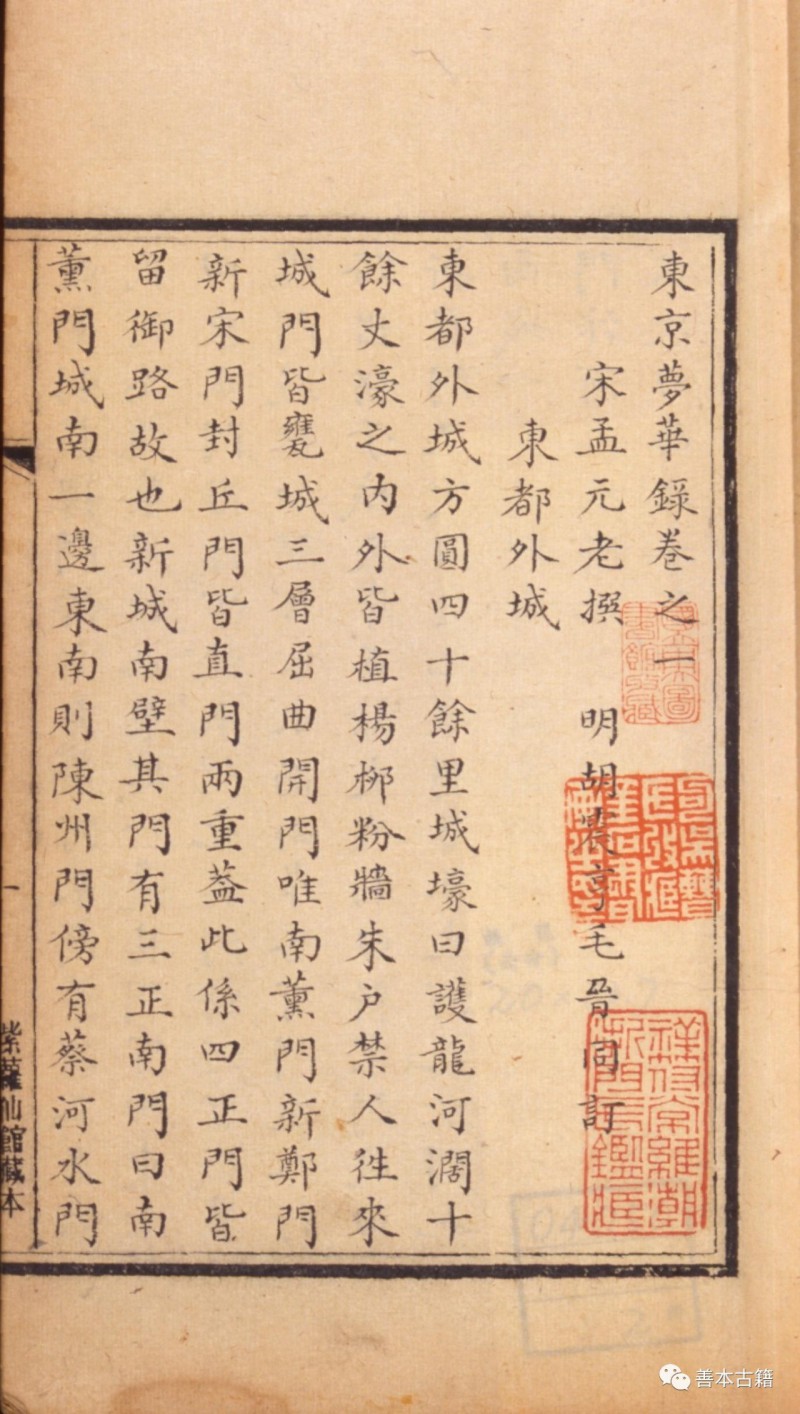 東京夢華錄卷之一
宋孟元老撰　明胡震亨毛晉同訂
東都外城
東都外城方圓四十餘里城壕曰護龍河濶十
餘丈濠之内外皆植楊栁粉牆朱户禁人徃來
城門皆甕城三層屈曲開門唯南薰門新鄭門
新宋門封丘門皆直門兩重葢此係四正門皆
留御路故也新城南壁其門有三正南門曰南
薰門城南一邊東南則陳州門傍有蔡河水門
一
紫蘿仙館藏本
祥符常維潮
善本古籍